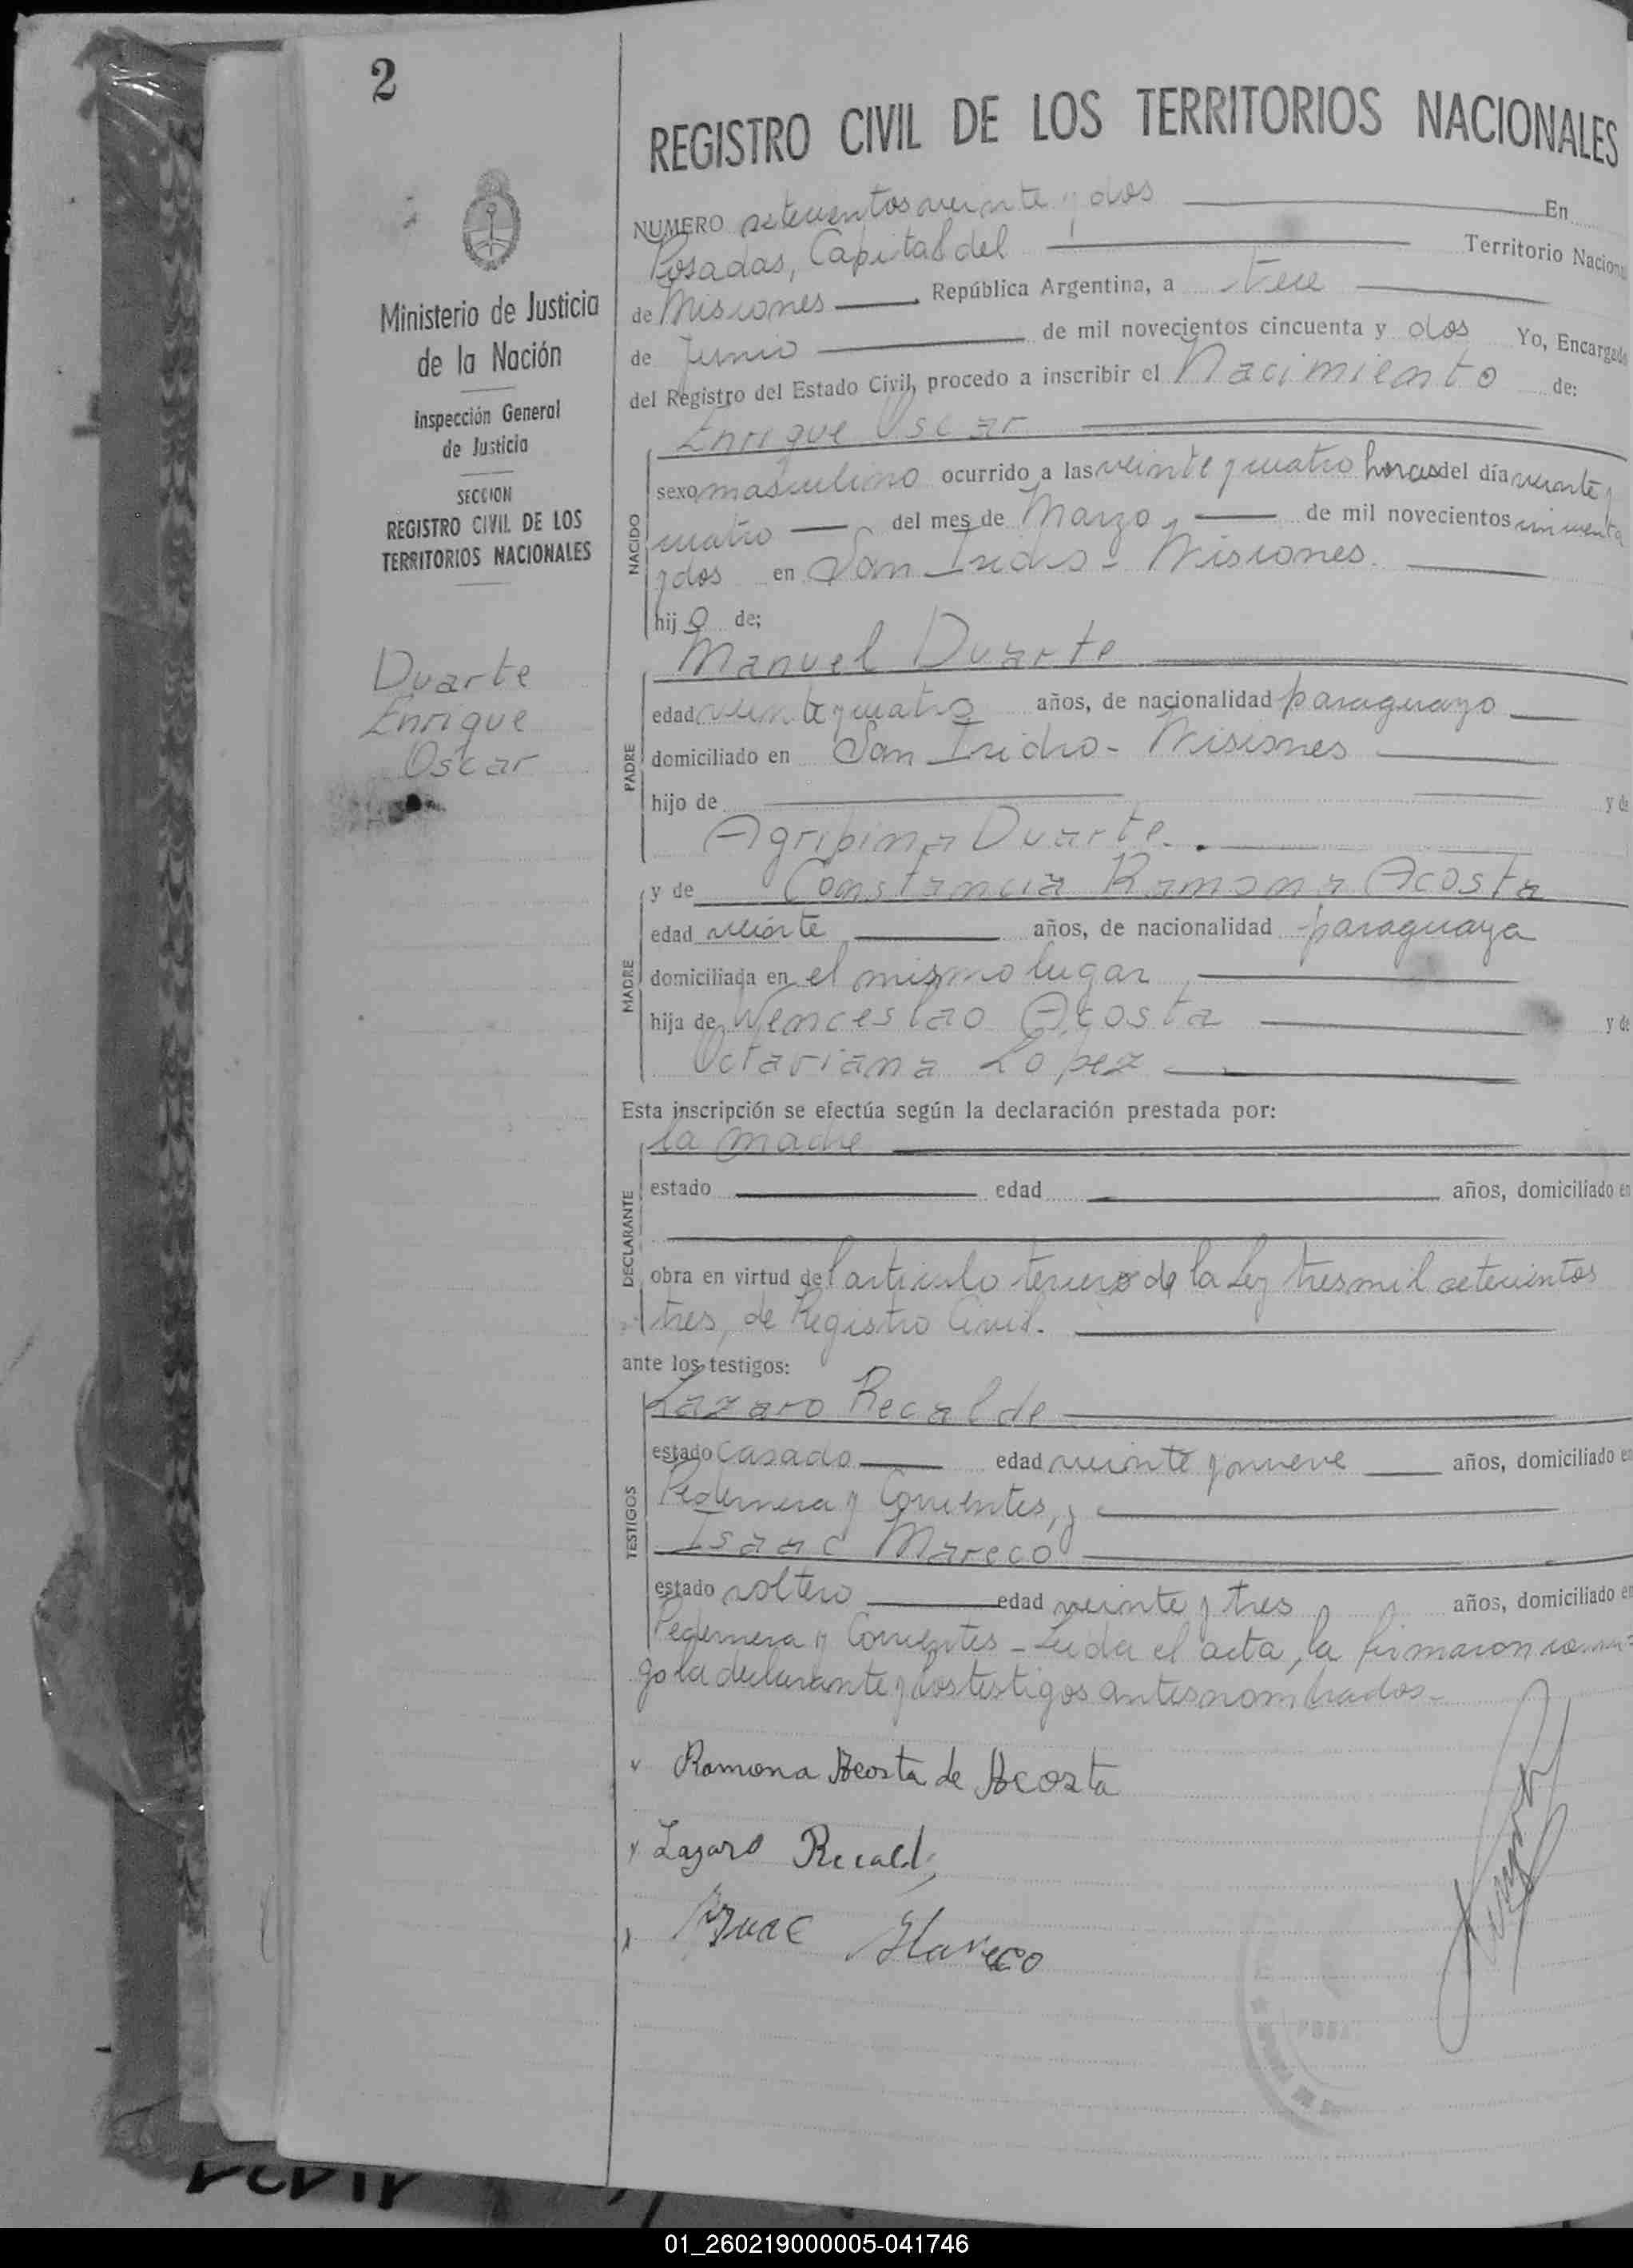 2
REGISTRO CIVIL DE LOS TERRITORIOS NACIONALES
Ministerio de Justicia
de la Nación
Inspección General
de Justicia
SECCION
REGISTRO CIVIL DE LOS
TERRITORIOS NACIONALES
Duarte
Enrique
Oscar
NUMERO setecientos veinte y dos En
Posadas, Capital del Territorio Nacional
de Misiones República Argentina, a trece
de Junio de mil novecientos cincuenta y dos Yo, Encargado
del Registro del Estado Civil, procedo a inscribir el Nacimiento de:
Enrique Oscar
NACIDO
sexo masculino ocurrido a las veinte y cuatro horas del día veinte y
cuatro del mes de Marzo de mil novecientos cincuenta
y dos en San Isidro - Misiones.
hijo de:
PADRE
Manuel Duarte
edad veinte y cuatro años, de nacionalidad paraguayo
domiciliado en San Isidro - Misiones
hijo de y de
Agripina Duarte.
MADRE
y de Constancia Ramona Acosta
edad veinte años, de nacionalidad paraguaya
domiciliada en el mismo lugar
hija de Wenceslao Acosta y de
Octaviana Lopez
Esta inscripción se efectúa según la declaración prestada por:
DECLARANTE
la madre
estado edad años, domiciliado en
obra en virtud del articulo tercero de la Ley tres mil setecientos
tres, de Registro Civil.
ante los testigos:
TESTIGOS
Lazaro Recalde
estado casado edad veinte y nueve años, domiciliado en
Pedernera y Corrientes, y
Isaac Mareco
estado soltero edad veinte y tres años, domiciliado en
Pedernera y Corrientes - Leida el acta, la firmaron conmi=
go la declarante y los testigos antes nombrados.-
Ramona Acosta de Acosta
Lazaro Recald
Isaac Mareco
01_260219000005-041746